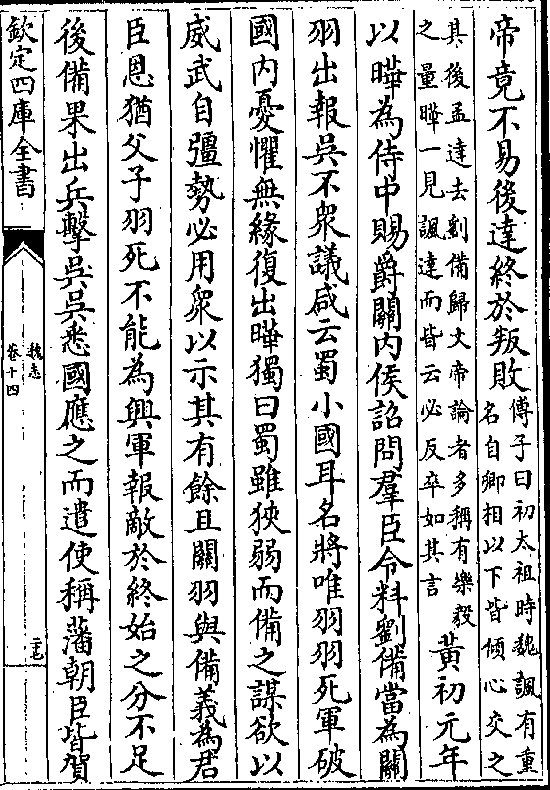 帝竟不易後達終於叛敗
傅子曰初太祖時魏諷有重
名自卿相以下皆傾心交之
其後孟達去劉備歸文帝論者多稱有樂毅
之量曄一見諷達而皆云必反卒如其言
黃初元年
以曄為侍中賜爵關内侯詔問羣臣令料劉備當為關
羽出報吳不衆議咸云蜀小國耳名將唯羽羽死軍破
國内憂懼無緣復出曄獨曰蜀雖狹弱而備之謀欲以
威武自彊勢必用衆以示其有餘且關羽與備義為君
臣恩猶父子羽死不能為興軍報敵於終始之分不足
後備果出兵擊吳吳悉國應之而遣使稱藩朝臣皆賀
欽定四庫全書
魏志
卷十四